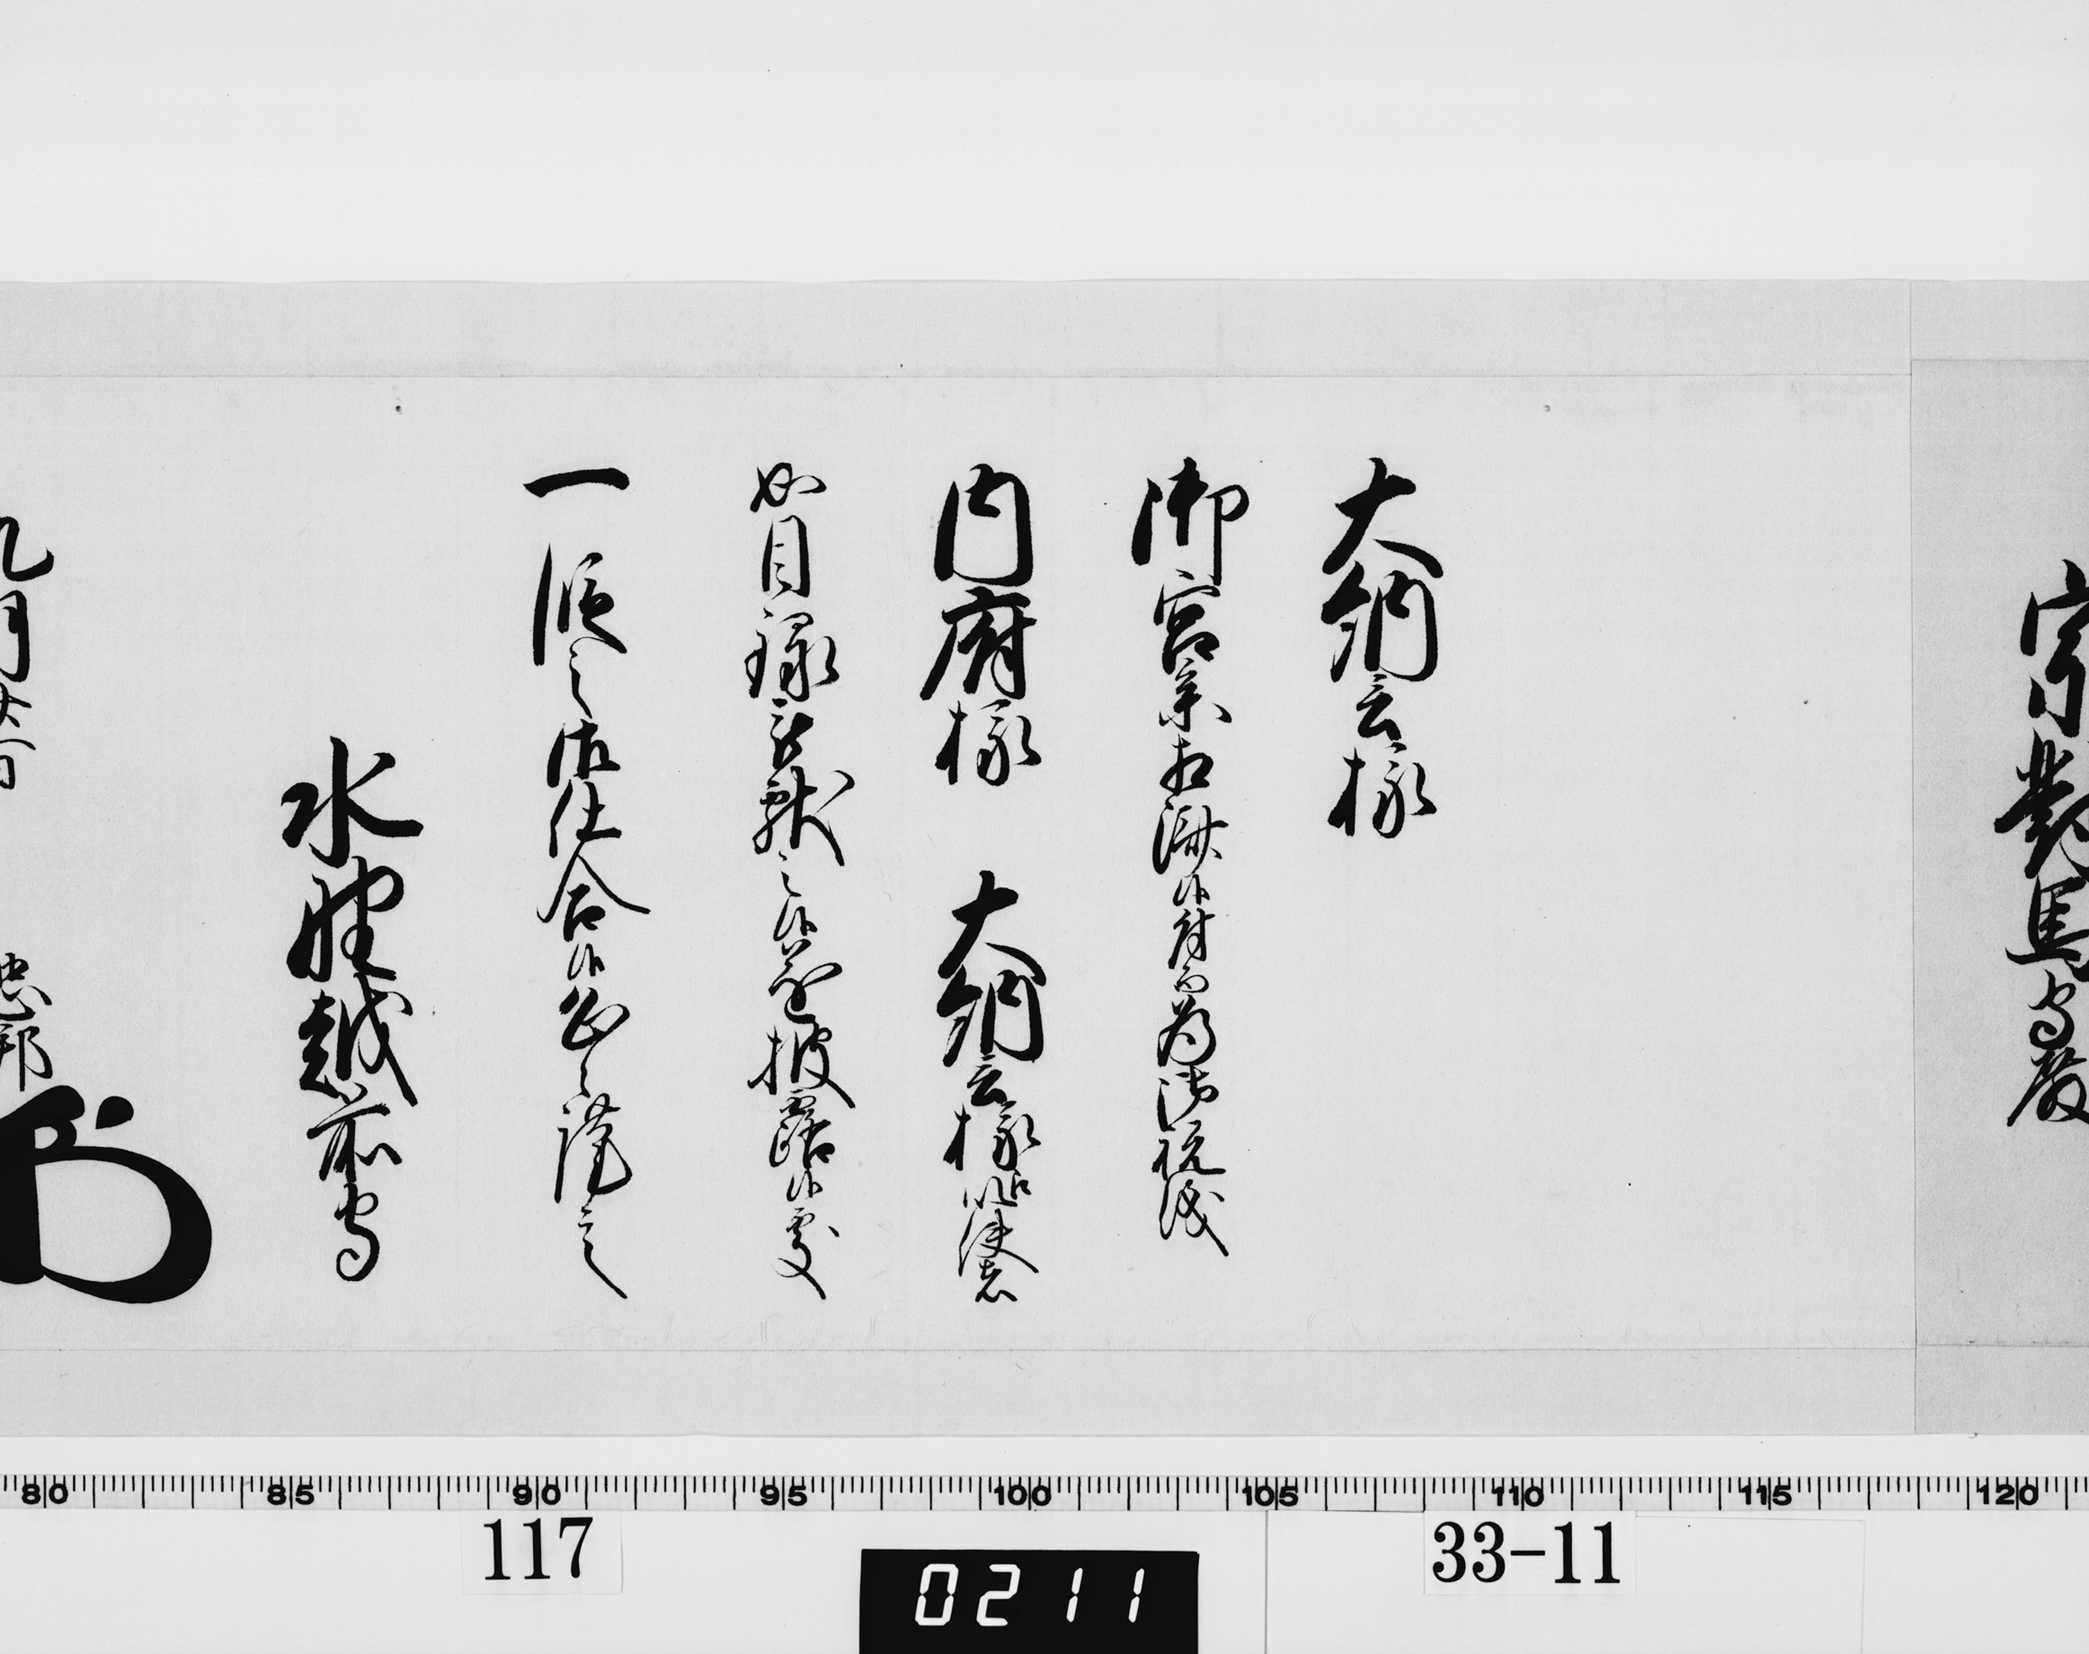 宗對馬守殿
大納言様
御宮参相済候付而為御祝儀
内府様 大納言様江以使者
如目録被献之候遂披露候処
一段之御仕合候恐々謹言
水野越前守
九月
忠邦
80 85 90 95 100 105 110 115 120
117
33-11
0211